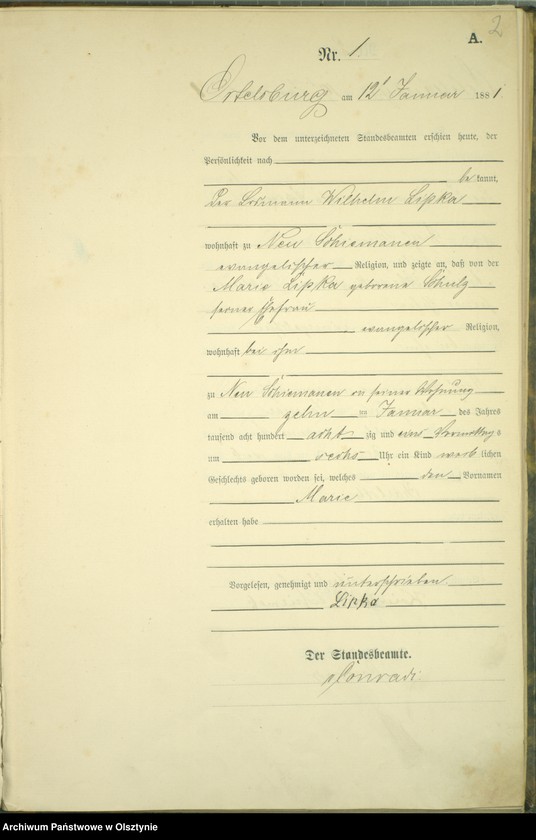 2
A.
Nr. 1.
Ortelsburg am 12t Januar 1881.
Vor dem unterzeichneten Standesbeamten erschien heute, der
Persönlichkeit nach
bekannt,
Der Losmann Wilhelm Lipka
wohnhaft zu Neu Schiemanen
evangelischer Religion, und zeigte an, daß von der
Marie Lipka geborene Schulz
seiner Ehefrau
evangelischer Religion,
wohnhaft bei ihm
zu Neu Schiemanen in seiner Wohnung
am zehn ten Januar des Jahres
tausend acht hundert acht zig und eins Vormittags
um sechs Uhr ein Kind weib lichen
Geschlechts geboren worden sei, welches den Vornamen
Marie
erhalten habe
Vorgelesen, genehmigt und unterschrieben
Lipka
Der Standesbeamte.
Conradi
Archiwum Państwowe w Olsztynie